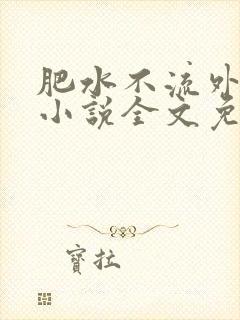 肥水不流外
小說全文免
寶拉